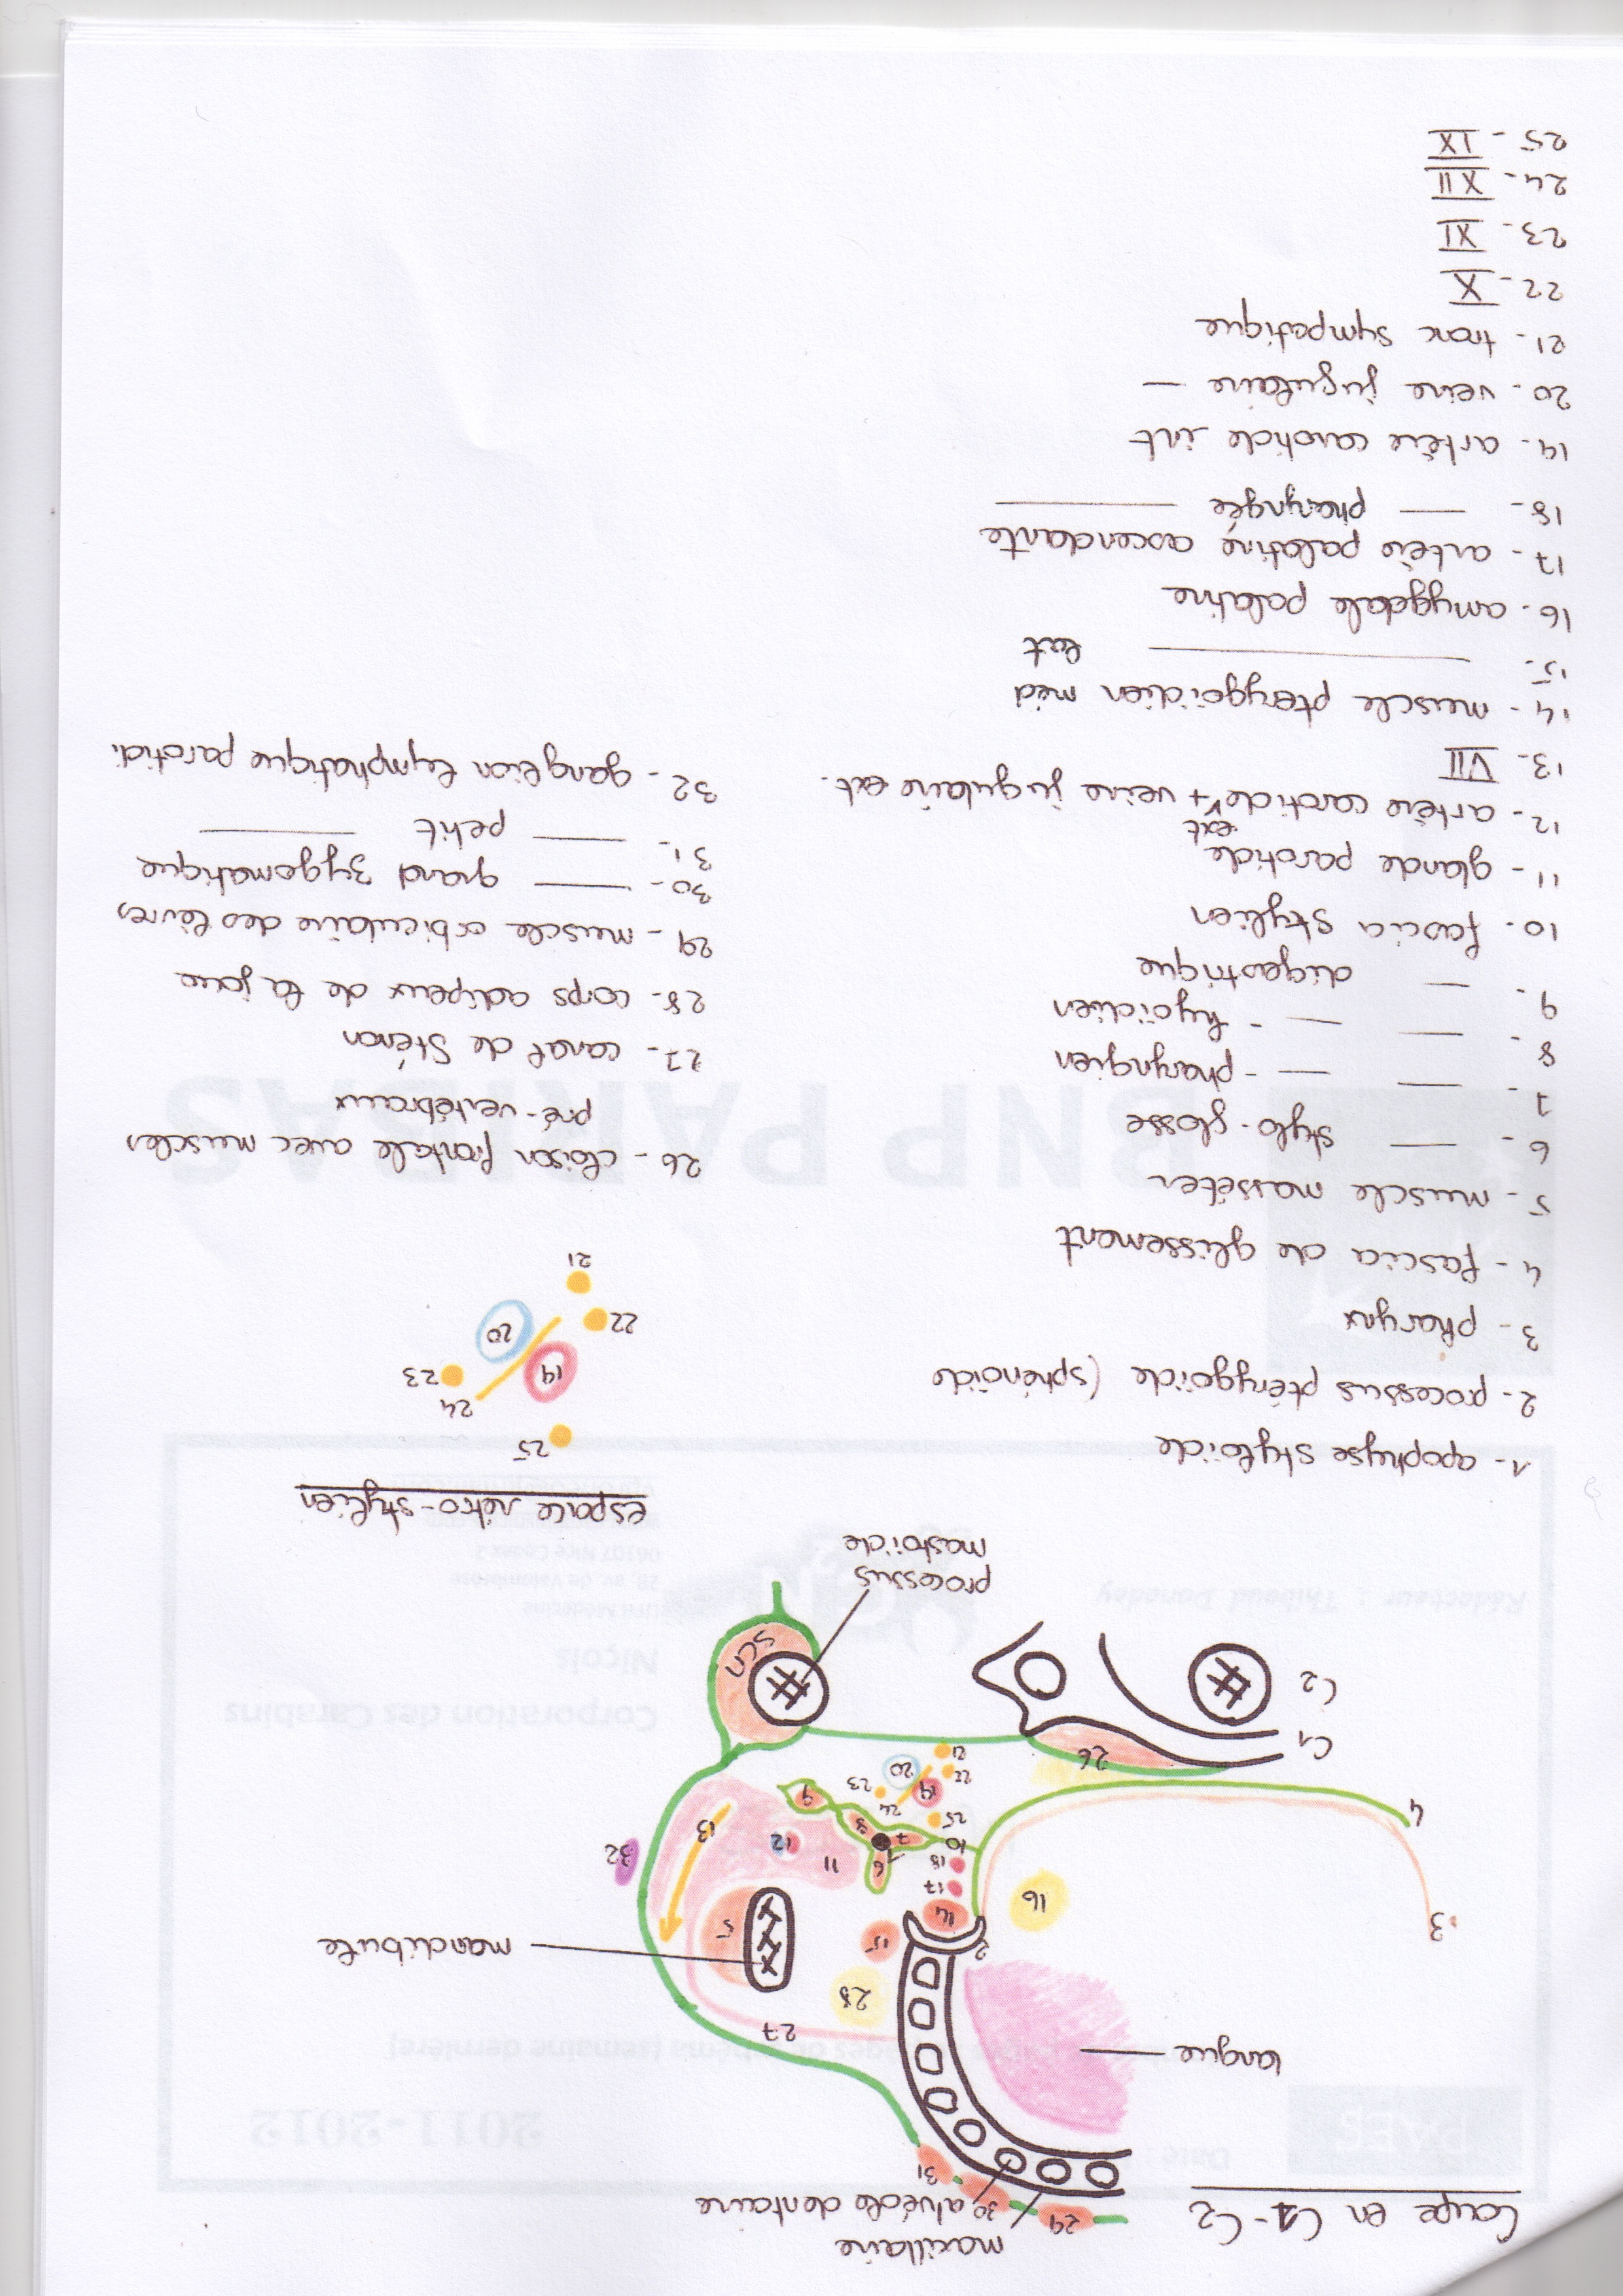 Coupe en C1-C2
maxillaire
alvéole dentaire
29
30
31
langue
27
28
mandibule
2
3
5
14
15
16
17
18
32
13
11
12
6
1
7
8
9
10
4
25
24
19
23
22
20
21
26
C1
C2
SCM
processus
mastoïde
espace rétro-stylien
25
24
23
19
22
20
21
1- apophyse styloïde
2- processus ptérygoïde (sphénoïde
3- pharynx
4- fascia de glissement
5- muscle masséter
6- —— stylo-glosse
7- —— — - pharyngien
8- —— — - hyoïdien
9- — digastrique
10- fascia stylien
11- glande parotide
12- artère carotide ext + veine jugulaire ext.
13- VII
14- muscle pterygoïdien méd
15- ———— lat
16- amygdale palatine
17- artère palatine ascendante
18- —— pharyngée ————
19- artère carotide int
20- veine jugulaire —
21- tronc sympatique
22- X
23- XI
24- XII
25- IX
26- cloison frontale avec muscles
pré-vertébraux
27- canal de Sténon
28- corps adipeux de la joue
29- muscle orbiculaire des lèvres
30- —— grand zygomatique
31- —— petit ————
32- ganglion lymphatique parotidi.
BNP PARIBAS
Rédacteur : Thibaud Donaday
Corporation des Carabins
Niçois
UFR Médecine
28, av. de Valombrose
06107 Nice Cedex 2
2011-2012
Date :